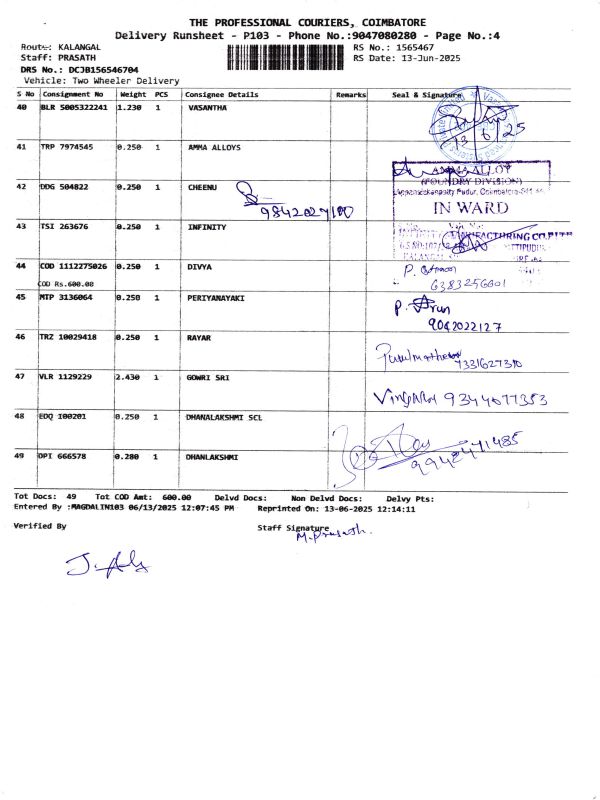 THE PROFESSIONAL COURIERS, COIMBATORE
Delivery Runsheet - P103 - Phone No.:9047080280 - Page No.:4
Route: KALANGAL
RS No.: 1565467
Staff: PRASATH
RS Date: 13-Jun-2025
DRS No.: DCJB156546704
Vehicle: Two Wheeler Delivery
S No Consignment No Weight PCS Consignee Details Remarks Seal & Signature
40 BLR 5005322241 1.230 1 VASANTHA
13/6/25
41 TRP 7974545 0.250 1 AMMA ALLOYS
ALLOY
(FOUNDRY DIVISION)
42 DDG 504822 0.250 1 CHEENU
IN WARD
43 TSI 263676 0.250 1 INFINITY
44 COD 1112275026 0.250 1 DIVYA
COD Rs.600.00
6383256601
45 MTP 3136064 0.250 1 PERIYANAYAKI
P. Arun
9042022127
46 TRZ 10029418 0.250 1 RAYAR
7331627310
47 VLR 1129229 2.430 1 GOWRI SRI
48 EDQ 100201 0.250 1 DHANALAKSHMI SCL
49 DPI 666578 0.280 1 DHANLAKSHMI
Tot Docs: 49 Tot COD Amt: 600.00 Delvd Docs: Non Delvd Docs: Delvy Pts:
Entered By :MAGDALIN103 06/13/2025 12:07:45 PM Reprinted On: 13-06-2025 12:14:11
Verified By
Staff Signature
M.Prasath.